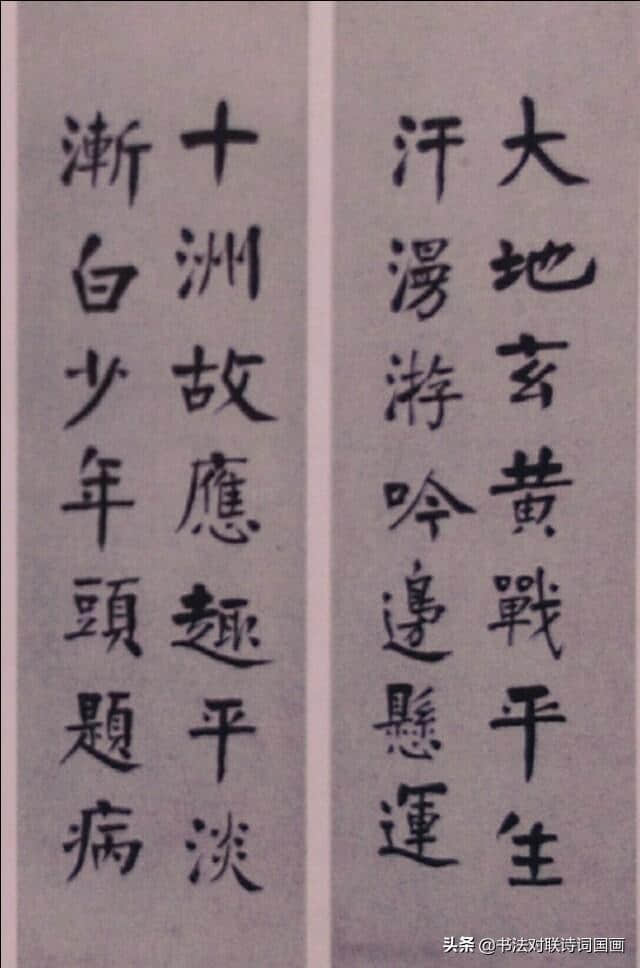 大地玄黄戰平生
汗漫游吟邊懸運
十洲故應趣平淡
漸白少年頭題病
头条 @书法对联诗词国画